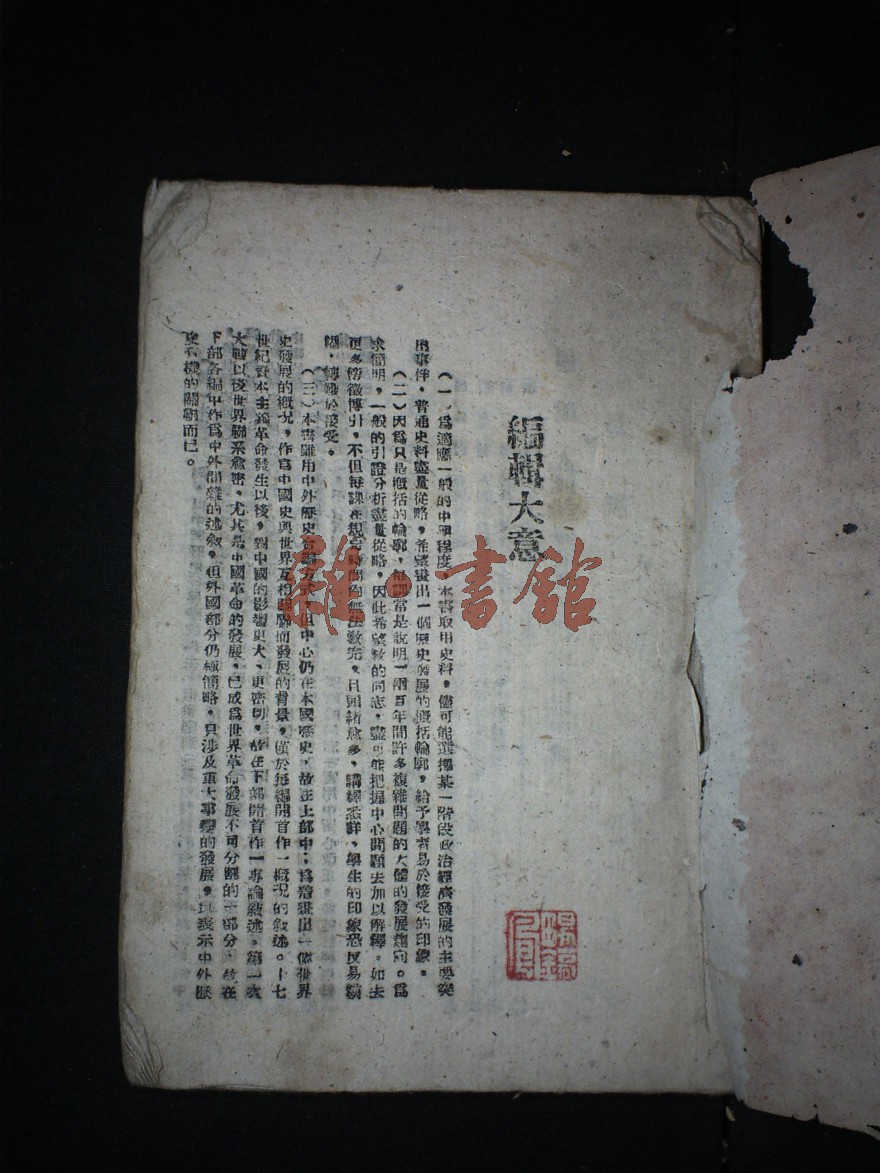 編輯大意
（一）為適應一般的中學程度，本書取用史料，儘可能選擇某一階段政治經濟發展的主要突
出事件，普通史料盡量從略，希望畫出一個歷史發展的概括輪廓，給予學者易於接受的印象。
（二）因為只是概括的輪廓，每課常是說明一兩百年間許多複雜問題的大體的發展趨向。為
求簡明，一般的引證分析盡量從略，因此希望教的同志，盡可能把握中心問題去加以解釋。如去
更多傍徵博引，不但每課在規定時間內無法教完，且頭緒愈多，講釋愈詳，學生的印象恐反易模
糊，轉難於接受。
（三）本書雖用中外歷史合編方式，但中心仍在本國歷史，故在上部中，為繪畫出一個世界
史發展的概況，作為中國史與世界互相關聯而發展的背景，僅於每編開首作一概況的敘述。十七
世紀資本主義革命發生以後，對中國的影響更大、更密切，故在下部開首作一專論敘述。第一次
大戰以後世界聯系愈密，尤其是中國革命的發展，已成為世界革命發展不可分割的一部分，故在
下部各編中作為中外間雜的述敘，但外國部分仍極簡略，只涉及重大事變的發展，以表示中外歷
史有機的關聯而已。
雜·書館